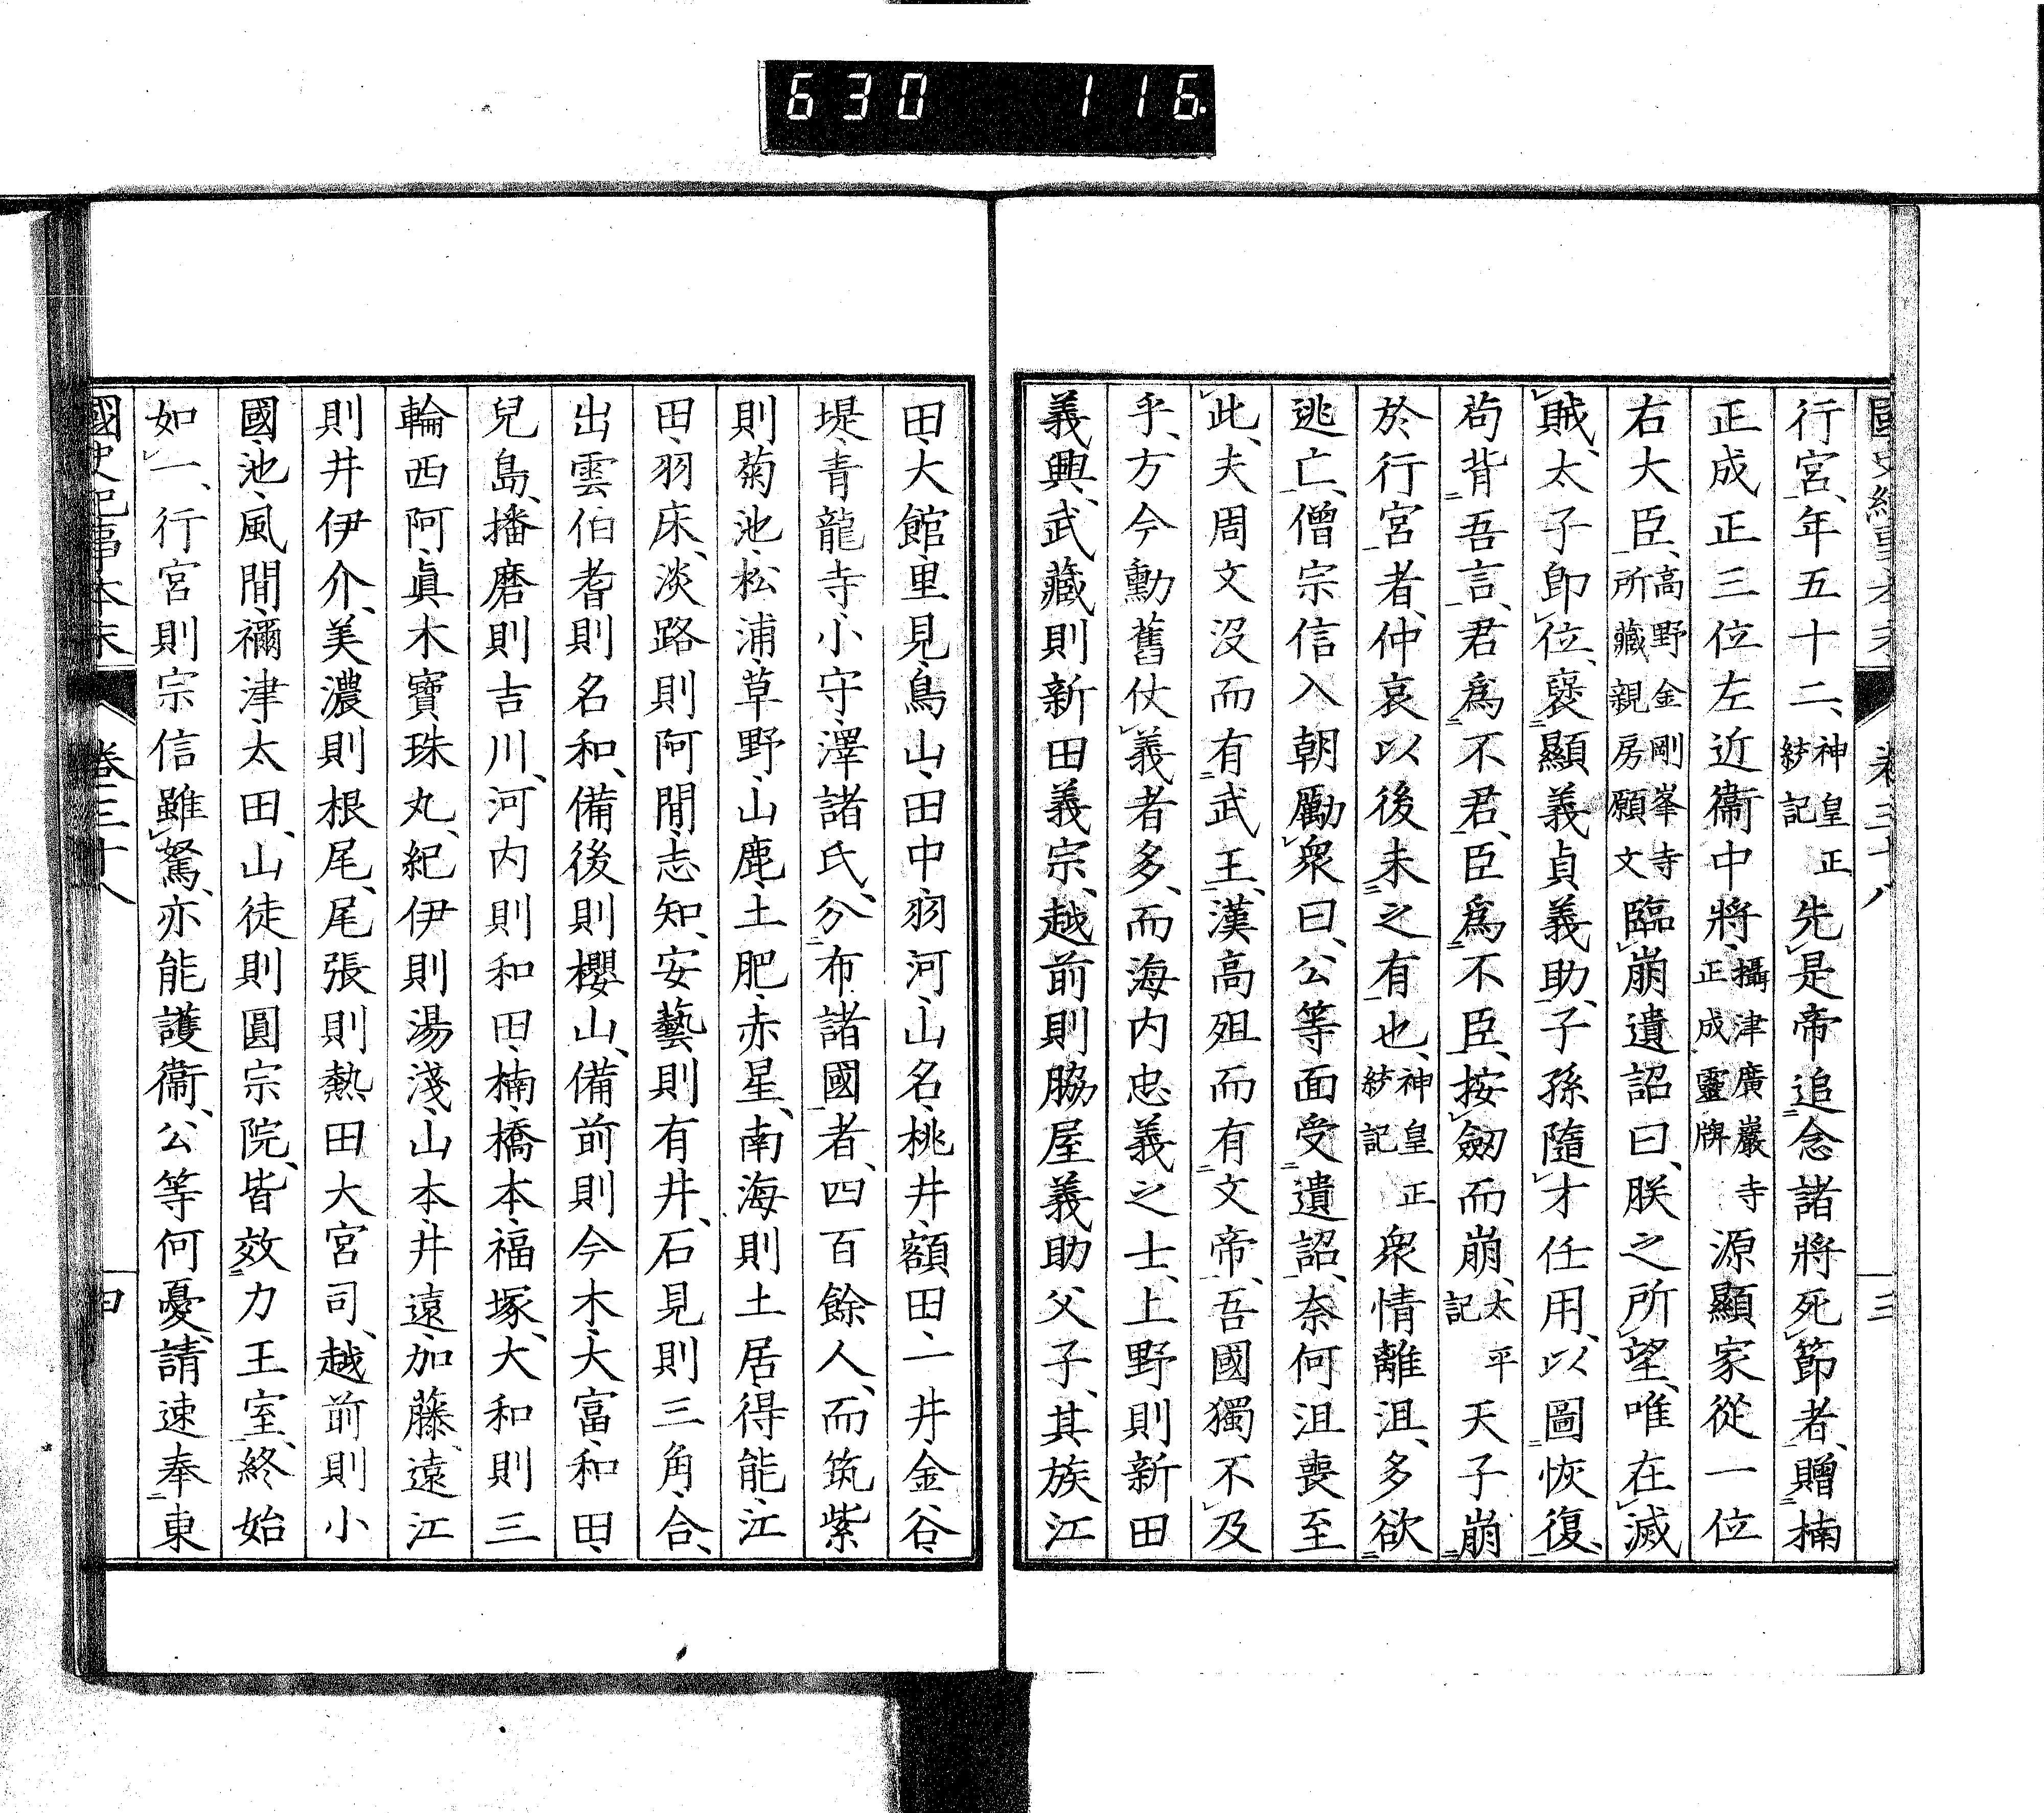 630 116
國史紀事本末 卷三十八 三
行宮、年五十二、神皇正統記 先是帝追念諸將死節者、贈楠
正成正三位左近衞中將、攝津廣嚴寺正成靈牌 源顯家從一位
右大臣、高野金剛峯寺所藏親房願文 臨崩遺詔曰、朕之所望、唯在滅
賊、太子卽位、襃顯義貞義助、子孫隨才任用、以圖恢復、
苟背吾言、君爲不君、臣爲不臣、按劒而崩、太平記 天子崩
於行宮者、仲哀以後未之有也、神皇正統記 衆情離沮、多欲
逃亡、僧宗信入朝勵衆曰、公等面受遺詔、奈何沮喪至
此、夫周文沒而有武王、漢高殂而有文帝、吾國獨不及
乎、方今勳舊仗義者多、而海内忠義之士、上野則新田
義興、武藏則新田義宗、越前則脇屋義助父子、其族江
田、大館、里見、鳥山、田中、羽河、山名、桃井、額田、一井、金谷、
堤、青龍寺、小守、澤諸氏、分布諸國者、四百餘人、而筑紫
則菊池、松浦、草野、山鹿、土肥、赤星、南海則土居、得能、江
田、羽床、淡路則阿間、志知、安藝則有井、石見則三角、合、
出雲伯耆則名和、備後則櫻山、備前則今木、大富、和田、
兒島、播磨則吉川、河内則和田、楠、橋本、福塚、大和則三
輪西阿、眞木寶珠丸、紀伊則湯淺、山本、井遠、加藤、遠江
則井伊介、美濃則根尾、尾張則熱田大宮司、越前則小
國、池、風間、禰津、太田、山徒則圓宗院、皆效力王室、終始
如一、行宮則宗信雖駑、亦能護衞、公等何憂、請速奉東
國史紀事本末 卷三十八 四